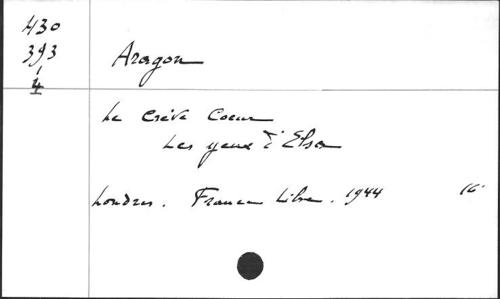 430
393
1
4
Aragon
Le Crève Coeur
Les yeux d'Elsa
Londres. France Libre. 1944 16°